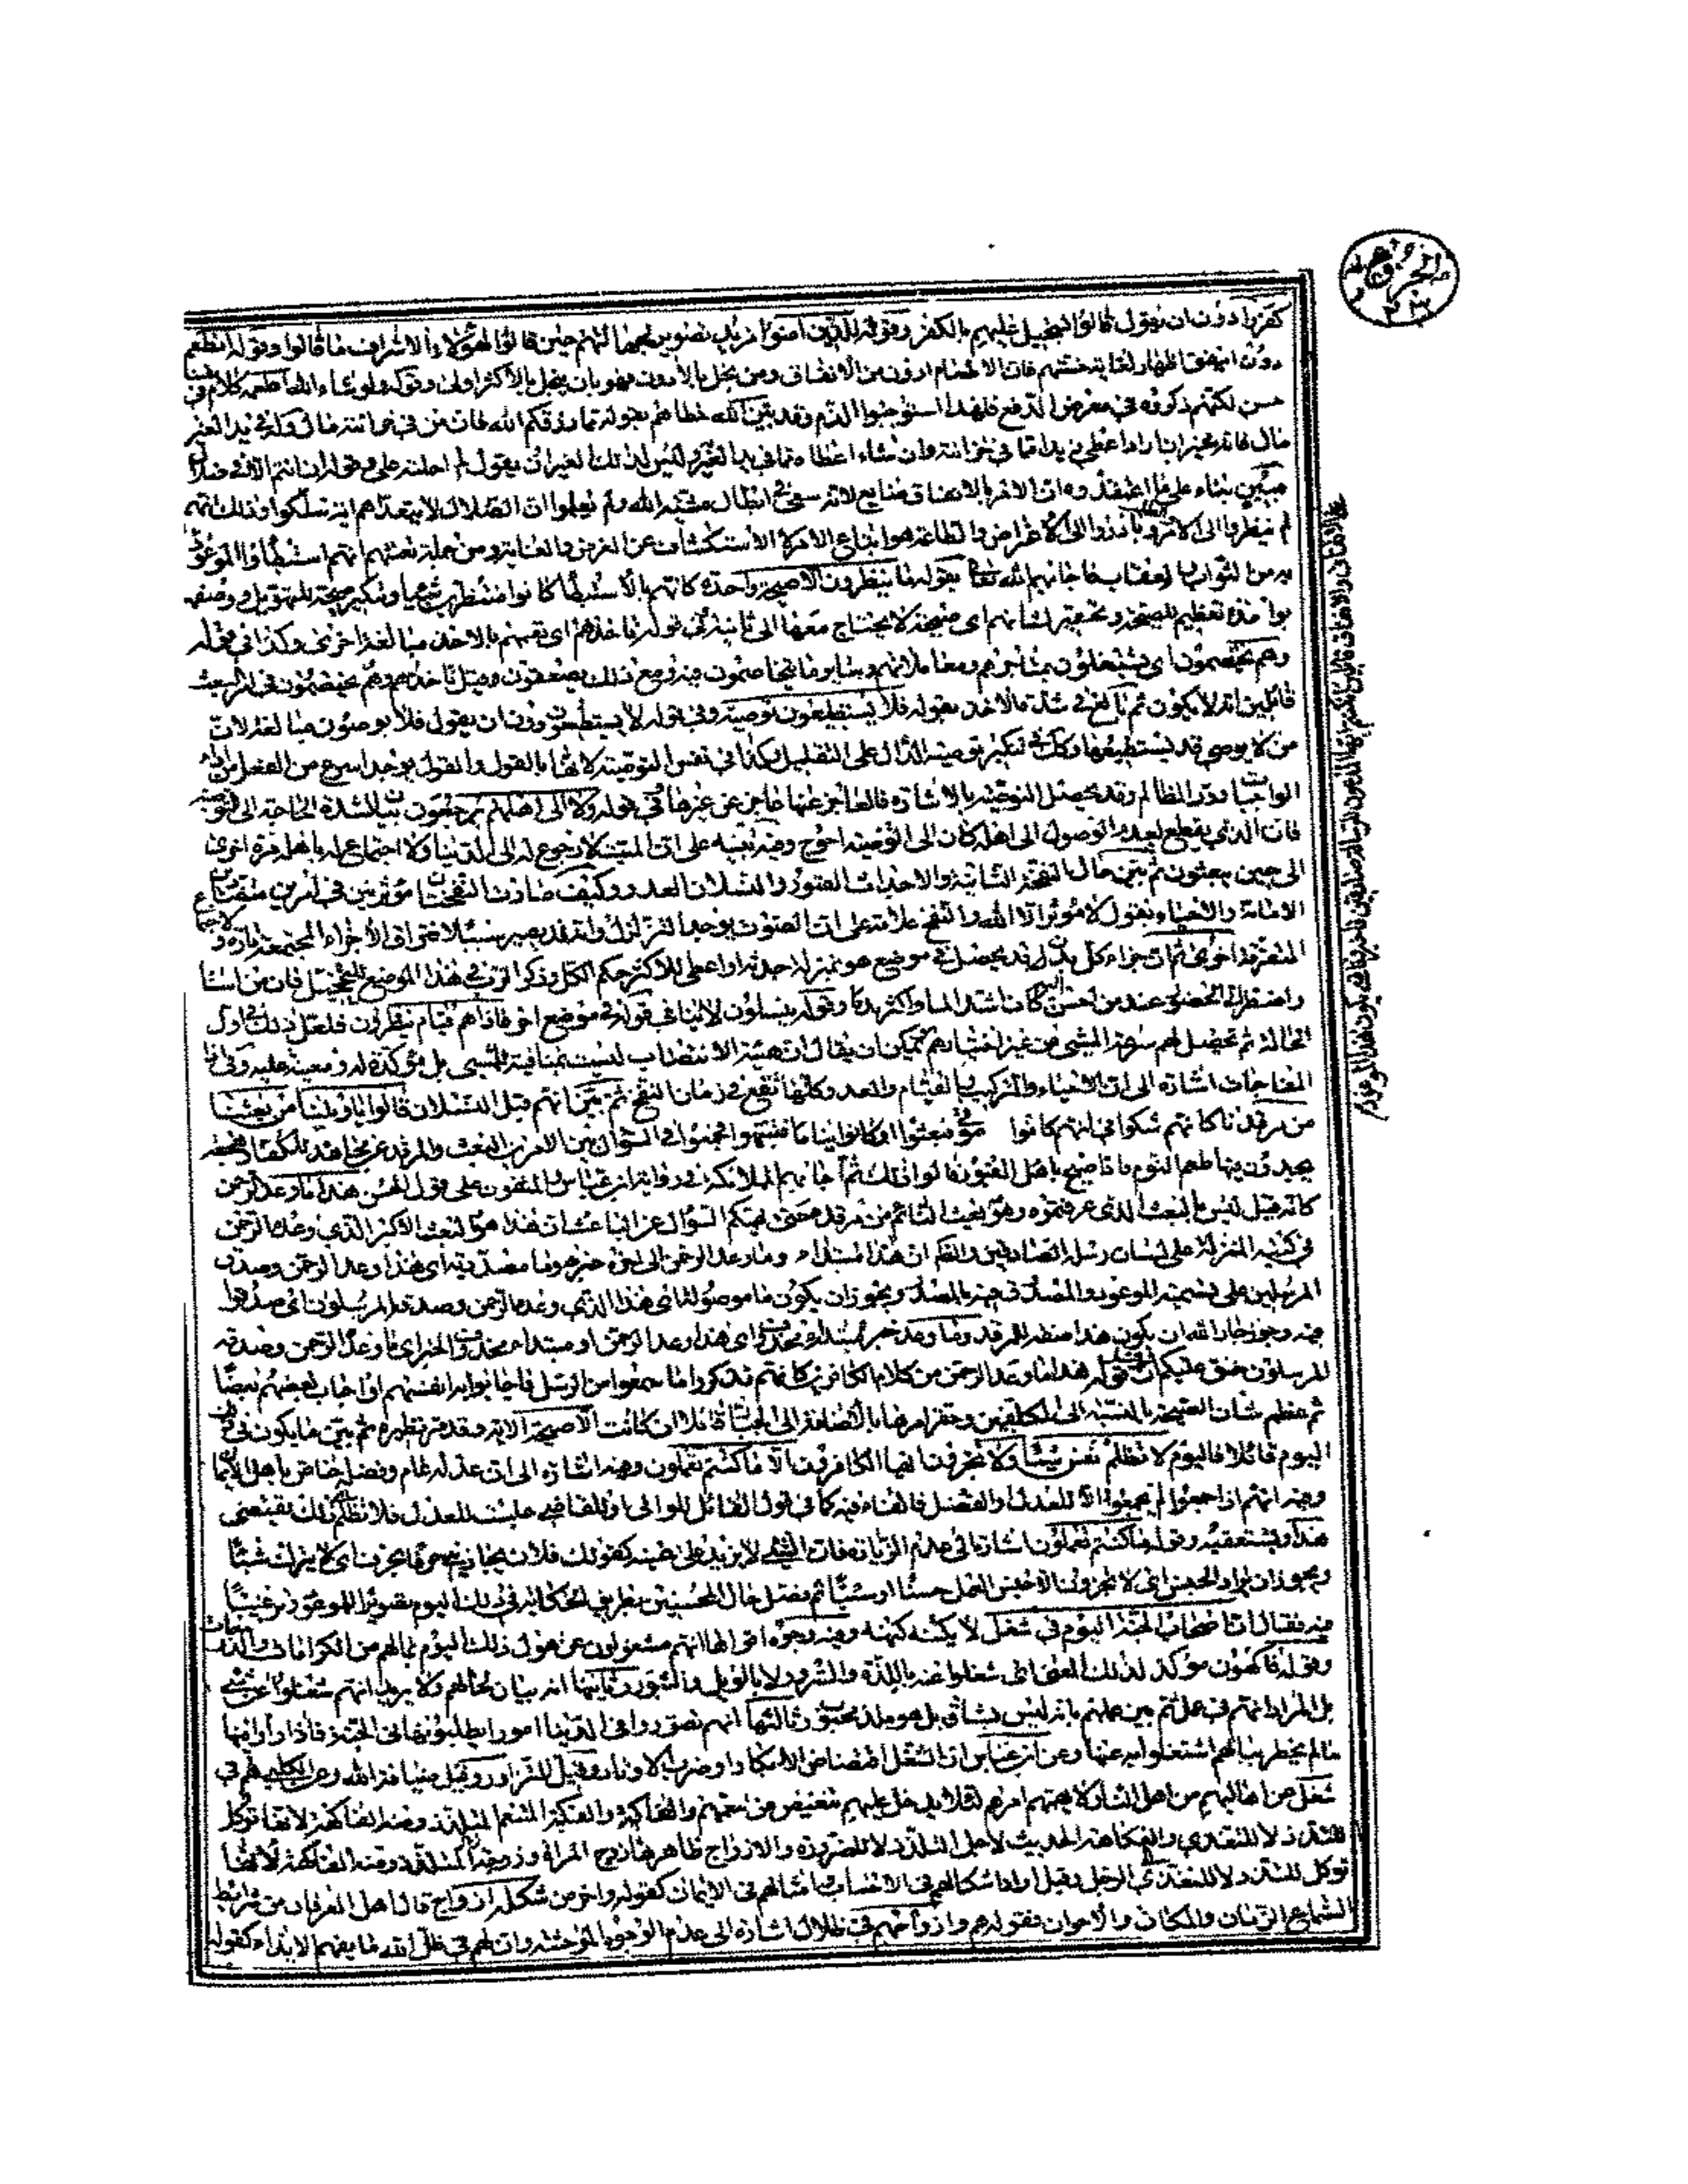 كفروا دون ان يقول قالوا لتسجيل عليهم بالكفر وقوله للذين امنوا مزيد تصوير لجهالتهم حين قالوا لهؤلاء الاشراف ما قالوا وقوله انطعم
دون انفق اظهار لغاية خستهم فان الاطعام ادون من الانفاق ومن بخل بالادون فهو بان يبخل بالاكثر اولى وقوله لو يشاء الله اطعمه كلام في نفسه
حسن لكنهم ذكروه في معرض الدفع فلهذا استوجبوا الذم وقد بين الله خطاهم بقوله مما رزقكم الله فان من في خزانته مال وله في يد الغير
مال فانه مخير ان اراد اعطى زيدا مما في خزانته وان شاء اعطاه مما في يد الغير وليس لذلك الغير ان يقول لم احلته علي وقوله ان انتم الا في ضلال
مبين بناء على ما اعتقدوه ان الامر بالانفاق ضايع لانه سعى في ابطال مشية الله ولم يعلموا ان الضلال لا يتعداهم اية سلكوا وذلك انهم
لم ينظروا الى الامر والطاعة هو اتباع الامر لا الاستكشاف عن الغرض والغاية ومن جملة تعنتهم انهم استبطأوا الموعود
به من الثواب والعقاب فاجابهم الله تعالى بقوله ما ينظرون الا صيحة واحدة كانهم بالاستبطاء كانوا منتظرين شيئا وتنكير صيحة للتهويل ووصفها
بواحدة تعظيم للصيحة وتحقير لشانهم اي صيحة لا يحتاج معها الى ثانية وفي قوله تاخذهم اي تعمهم بالاخذ مبالغة اخرى وكذا في قوله
وهم يخصمون اي يشتغلون بمتاجرهم ومعاملاتهم وساير ما يتخاصمون فيه ومع ذلك يصعقون وقيل تاخذهم وهم يختصمون في امر البعث
قائلين انه لا يكون ثم بالغ في شدة الاخذ بقوله فلا يستطيعون توصية وفي قوله لا يستطيعون دون ان يقول فلا يوصون مبالغة لان
من لا يوصي قد يستطيعها وكذا في تنكير توصية الدال على التقليل وكذا في نفس التوصية لانها بالقول والقول يوجد اسرع من الفعل من اداء
الواجبات ورد المظالم وقد يحصل التوصية بالاشارة فالعاجز عنها عاجز عن غيرها وفي قوله ولا الى اهلهم يرجعون بيان لشدة الحاجة الى التوصية
فان الذي يقطع بعدم الوصول الى اهله كان الى التوصية احوج وفيه تنبيه على ان الميت لا رجوع له الى الدنيا ولا اجتماع له باهله مرة اخرى
الى حين يبعثون ثم بين حال النفخة الثانية والاجداث القبور والنسلان العدو وكيف صارت النفختان مؤثرتين في امرين متقابلين
الاماتة والاحياء نقول لا مؤثر الا الله والنفخ علامة على ان الصوت يوجب التزلزل وانه قد يصير سببا لافتراق الاجزاء المجتمعة تارة ولاجتماع
المتفرقة اخرى ثم ان اجزاء كل بدن قد يحصل في موضع هو بمنزلة جدثه او اعطى للاكثر حكم الكل وذكر الرب في هذا الموضع للتخجيل فان من اساء
واضطر الى الحضور عند من احسن اليه كان اشد الما واكثر ندما وقوله ينسلون لا ينافي قوله في موضع اخر فاذا هم قيام ينظرون فلعل ذلك في اول
الحالة ثم يحصل لهم سرعة المشي من غير اختيارهم ويمكن ان يقال ان هيئة الانتصاب ليست بمنافية للمشي بل مؤكدة له ومعينة عليه وفي اذا
المفاجاة اشارة الى ان الاحياء والتركيب والقيام والعدو كلها تقع في زمان النفخ ثم بين انهم قبل النسلان قالوا يا ويلنا من بعثنا
من مرقدنا كانهم شكوا في انهم كانوا موتى فبعثوا او كانوا نياما فنبهوا فجمعوا في السؤال بين الامرين البعث والمرقد عن مجاهد للكفار هجعة
يجدون فيها طعم النوم فاذا صيح باهل القبور قالوا ذلك ثم اجابهم الملائكة في رواية ابن عباس والمتقون على قول الحسن هذا ما وعد الرحمن
كانه قيل ليس بالبعث الذي عرفتموه وهو بعث النائم من مرقده حتى يهمكم السؤال عن الباعث ان هذا هو البعث الاكبر الذي وعده الرحمن
في كتبه المنزلة على لسان رسله الصادقين واعلم ان هذا مبتداء وما وعد الرحمن الى اخره خبره وما مصدرية اي هذا وعد الرحمن وصدق
المرسلين على تسمية الموعود والمصدوق فيه بالمصدر ويجوز ان يكون ما موصولة اي هذا الذي وعده الرحمن وصدقه المرسلون اي صدقوا
فيه وجوز جار الله ان يكون هذا صفة للمرقد وما وعد خبر مبتداء محذوف اي هذا وعد الرحمن او مبتداء محذوف الخبر اي ما وعد الرحمن وصدقه
المرسلون حق عليكم وقيل ان قوله هذا ما وعد الرحمن من كلام الكافرين كانهم تذكروا ما سمعوا من الرسل فاجابوا به انفسهم او اجاب بعضهم بعضا
ثم عظم شان الصيحة بالنسبة الى المكلفين وحقر امرها بالاضافة الى الجبار قائلا ان كانت الا صيحة الاية وقد مر نظيره ثم بين ما يكون في ذلك
اليوم قائلا فاليوم لا تظلم نفس شيئا ولا تجزون ايها الكافرون الا ما كنتم تعملون وفيه اشارة الى ان عدله عام وفضله خاص باهل الايمان
وفيه انهم اذا جمعوا لم يجمعوا الا للعدل والفضل فالفاء فيه كما في قول القائل للوالي او للقاضي جلست للعدل فلا تظلم اي ذلك يقتضي
هذا ويستعقبه وقوله ما كنتم تعملون اشارة الى عدم الزيادة فان الشيء لا يزيد على عينه كقولك فلان يجازيني حرفا بحرف اي لا يترك شيئا
ويجوز ان يراد الجنس اي لا تجزون الا جنس العمل حسنا او سيئا ثم فصل حال المحسنين بطريق الحكاية في ذلك اليوم تصويرا للموعود وترغيبا
فيه فقال ان اصحاب الجنة اليوم في شغل لا يكتنه كنهه وفيه وجوه اقواها انهم مشغولون عن هول ذلك اليوم بما لهم من الكرامات والدرجات
وقوله فاكهون مؤكد لذلك المعنى اي شغلوا عنه باللذة والسرور لا بالويل والثبور وثانيها انه بيان لحالهم ولا يريد انهم شغلوا عن شيء
بل المراد انهم في عمل ثم بين عملهم بانه ليس بشاق بل هو ملذ محبوب وثالثها انهم تصوروا في الدنيا امورا يطلبونها في الجنة فاذا راوا فيها
ما لم يخطر ببالهم اشتغلوا به عنها وعن ابن عباس ان الشغل افتضاض الابكار او ضرب الاوتار وقيل التزاور وقيل ضيافة الله وعن الكلبي هم في
شغل عن اهاليهم من اهل النار لا يهمهم امرهم لئلا يدخل عليهم تنغيص من نعيمهم والفاكه والفكه المتنعم المتلذذ ومنه الفاكهة لانها توكل
للتلذذ لا للتغذي والفكاهة الحديث لاجل التلذذ لا للضرورة والازواج ظاهرها زوج المراة وزوجة
توكل للتلذذ لا للتغذي الرجل وقيل اراد اشكالهم في الاحساب وامثالهم في الايمان كقوله واخر من شكله ازواج قال اهل العرفان من شرايط
السماع الزمان والمكان والاخوان فقوله هم وازواجهم في ظلال اشارة الى عدم الوجوه الموحشة وان لهم في ظل الله ما يمنع الايذاء كقوله